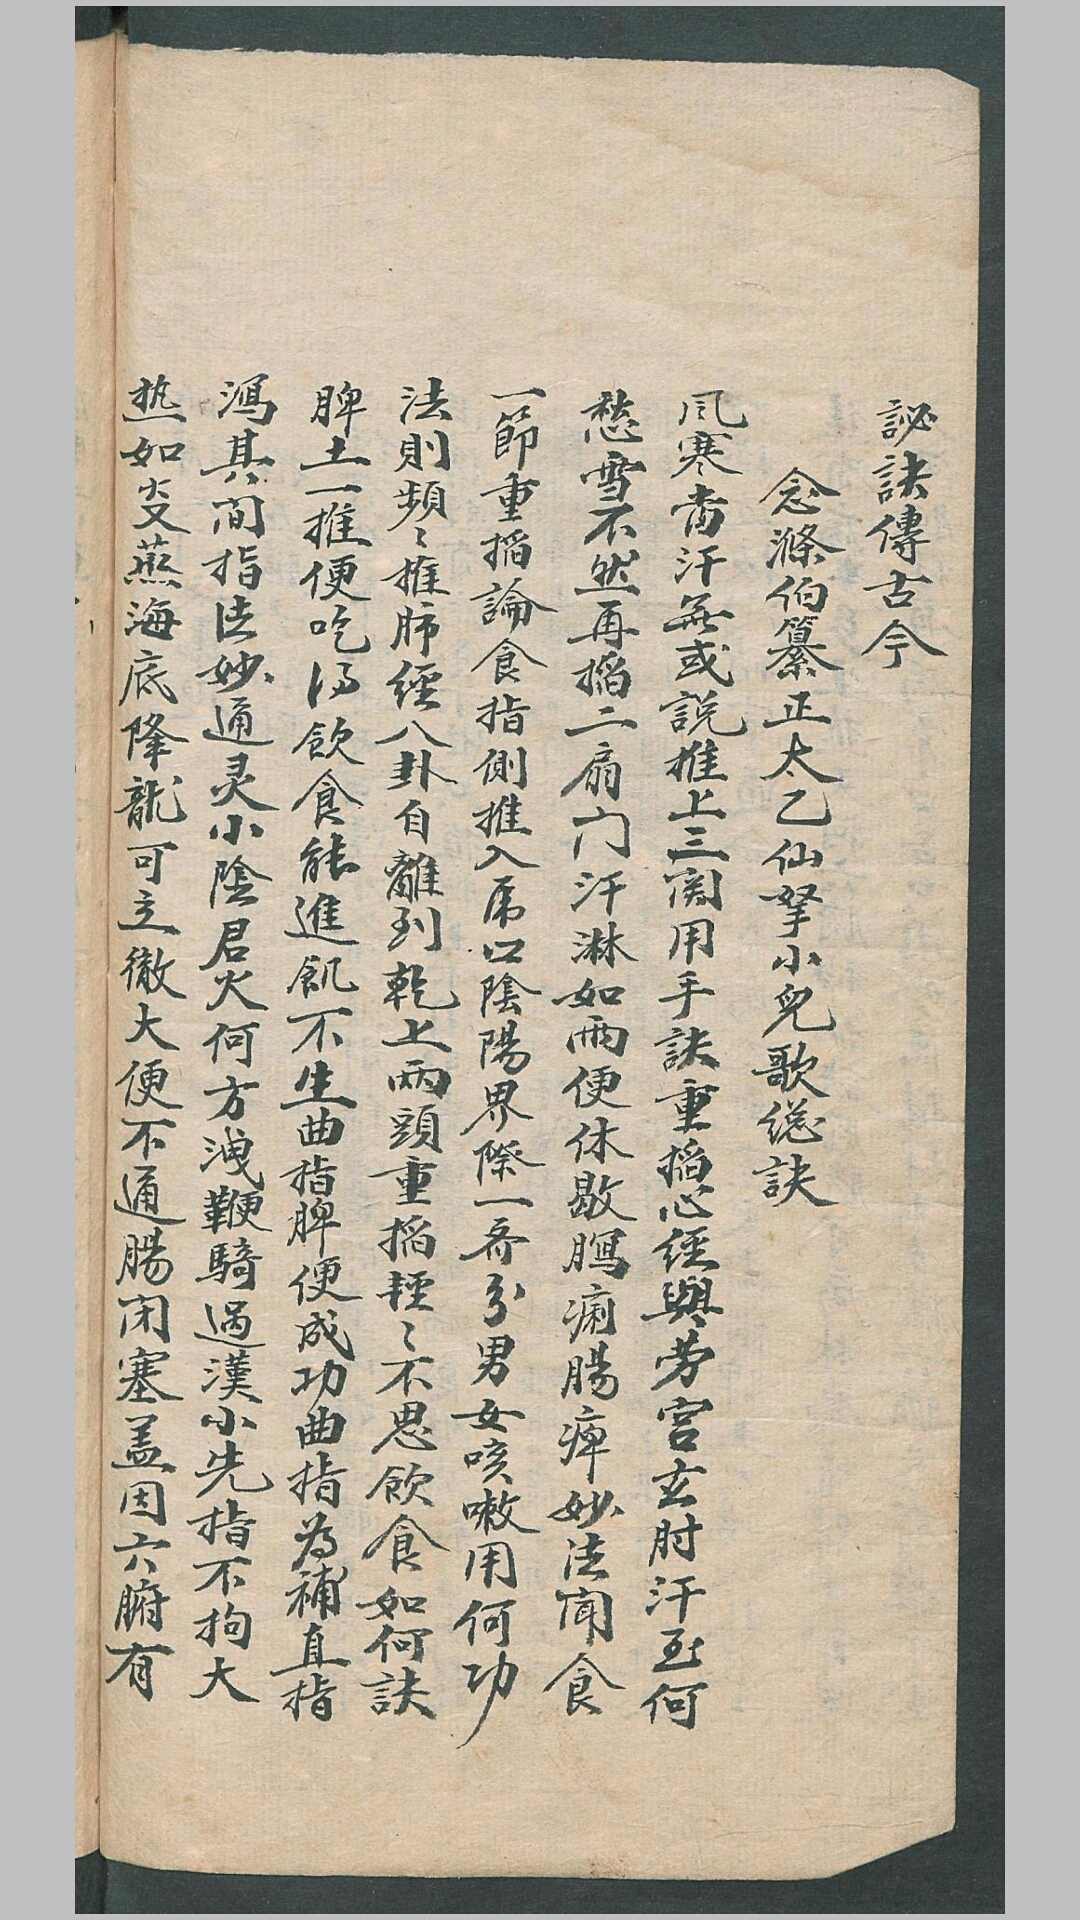 訣傳古今
念滌伯纂正太乙仙拏小兒歌総訣
風寒肯汗無或說推上三関用手訣重搯心經與勞宮玄肘汗至何
愁雪不然再搯二扇门汗淋如雨便休歇腸痢腸痺妙法闻食
一節重搯論食指側推入虎口陰陽界際一齐分男女咳嗽用何功
法則頻〻推肺經八卦自離到乾上兩頭重搯輕〻不思飲食如何訣
脾土一推便吃汤飲食能進飢不生曲指脾便成功曲指為補直指
瀉其间指法妙通灵小陰君火何方洩鞭騎過漢小先指不拘大
热如炎蒸海底降龍可立徹大便不通腸闭塞盖因六腑有